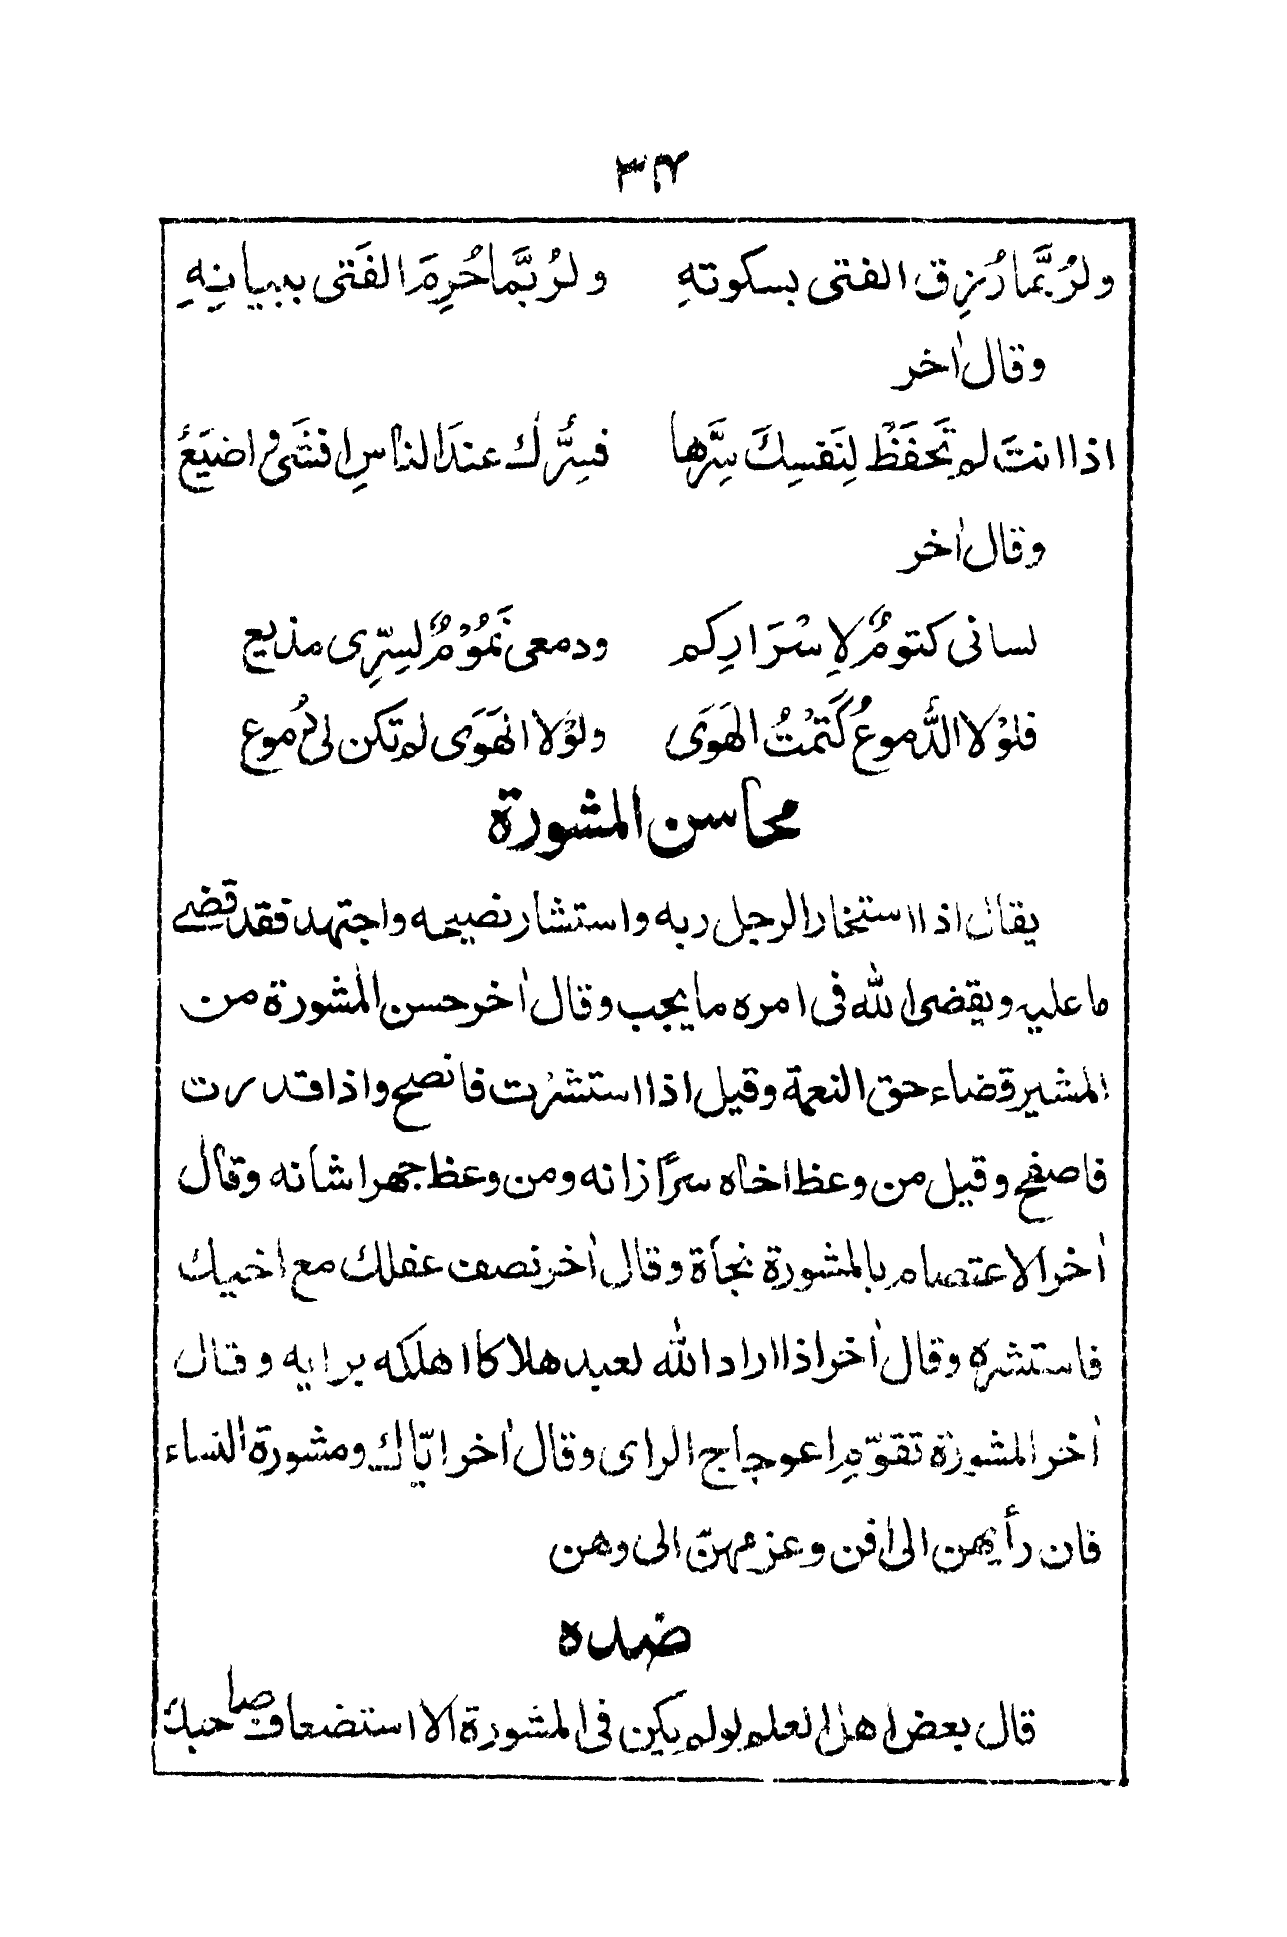 ٣٤
ولرُبَّما رُزِق الفتى بسكوتهِ ولرُبَّما حُرِمَ الفَتى ببيانِهِ
وقال اٰخر
اذا انتَ لم تَحفَظْ لِنَفسِكَ سِرَّها فسِرُّك عندَ الناسِ افشَى واضيَعُ
وقال اٰخر
لسانى كتومٌ لاِسْرَارِكم ودمعى نَمُوْمٌ لسِرِّى مذيع
فلوْلا الدُّموعُ كَتَمْتُ الهَوَى ولوْلا الهَوَى لم تَكن لى دُموع
محاسن المشورة
يقال اذا استخار الرجل ربه واستشار نصيحه واجتهد فقد قضى
ما عليه ويقضى الله فى امره ما يجب وقال اٰخر حسن المشورة من
المشير قضاء حق النعمة وقيل اذا استشرت فانصح واذا قدرت
فاصفح وقيل من وعظ اخاه سرًا زانه ومن وعظ جهرا شانه وقال
اٰخر الاعتصام بالمشورة نجاة وقال اٰخر نصف عقلك مع اخيك
فاستشره وقال اٰخر اذا اراد الله لعبد هلاكا اهلكه برايه وقال
اٰخر المشورة تقوّم اعوجاج الراى وقال اٰخر ايّاك ومشورة النساء
فان رأيهن الى افن وعزمهنّ الى وهن
ضده
قال بعض اهل العلم لو لم يكن فى المشورة الا استضعاف صاحبك